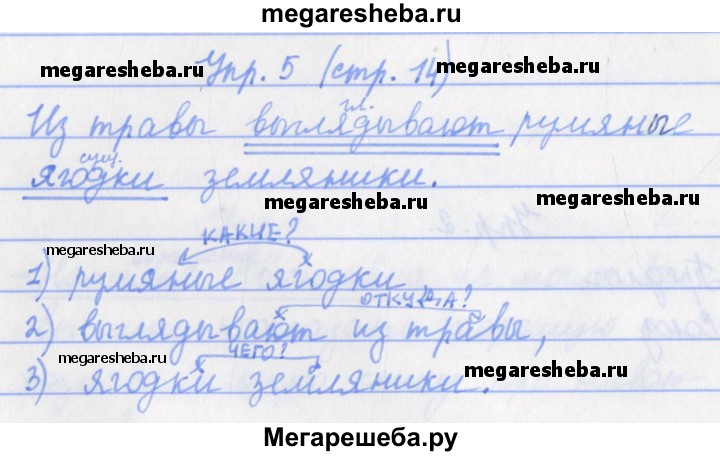 megaresheba.ru
megaresheba.ru Упр. 5 (стр. 14) megaresheba.ru
гл.
Из травы выглядывают румяные
сущ.
ягодки земляники.
megaresheba.ru megaresheba.ru
КАКИЕ?
megaresheba.ru
1) румяные ягодки
ОТКУДА?
2) выглядывают из травы,
megaresheba.ru ЧЕГО? megaresheba.ru
3) ягодки земляники.
Мегарешеба.ру